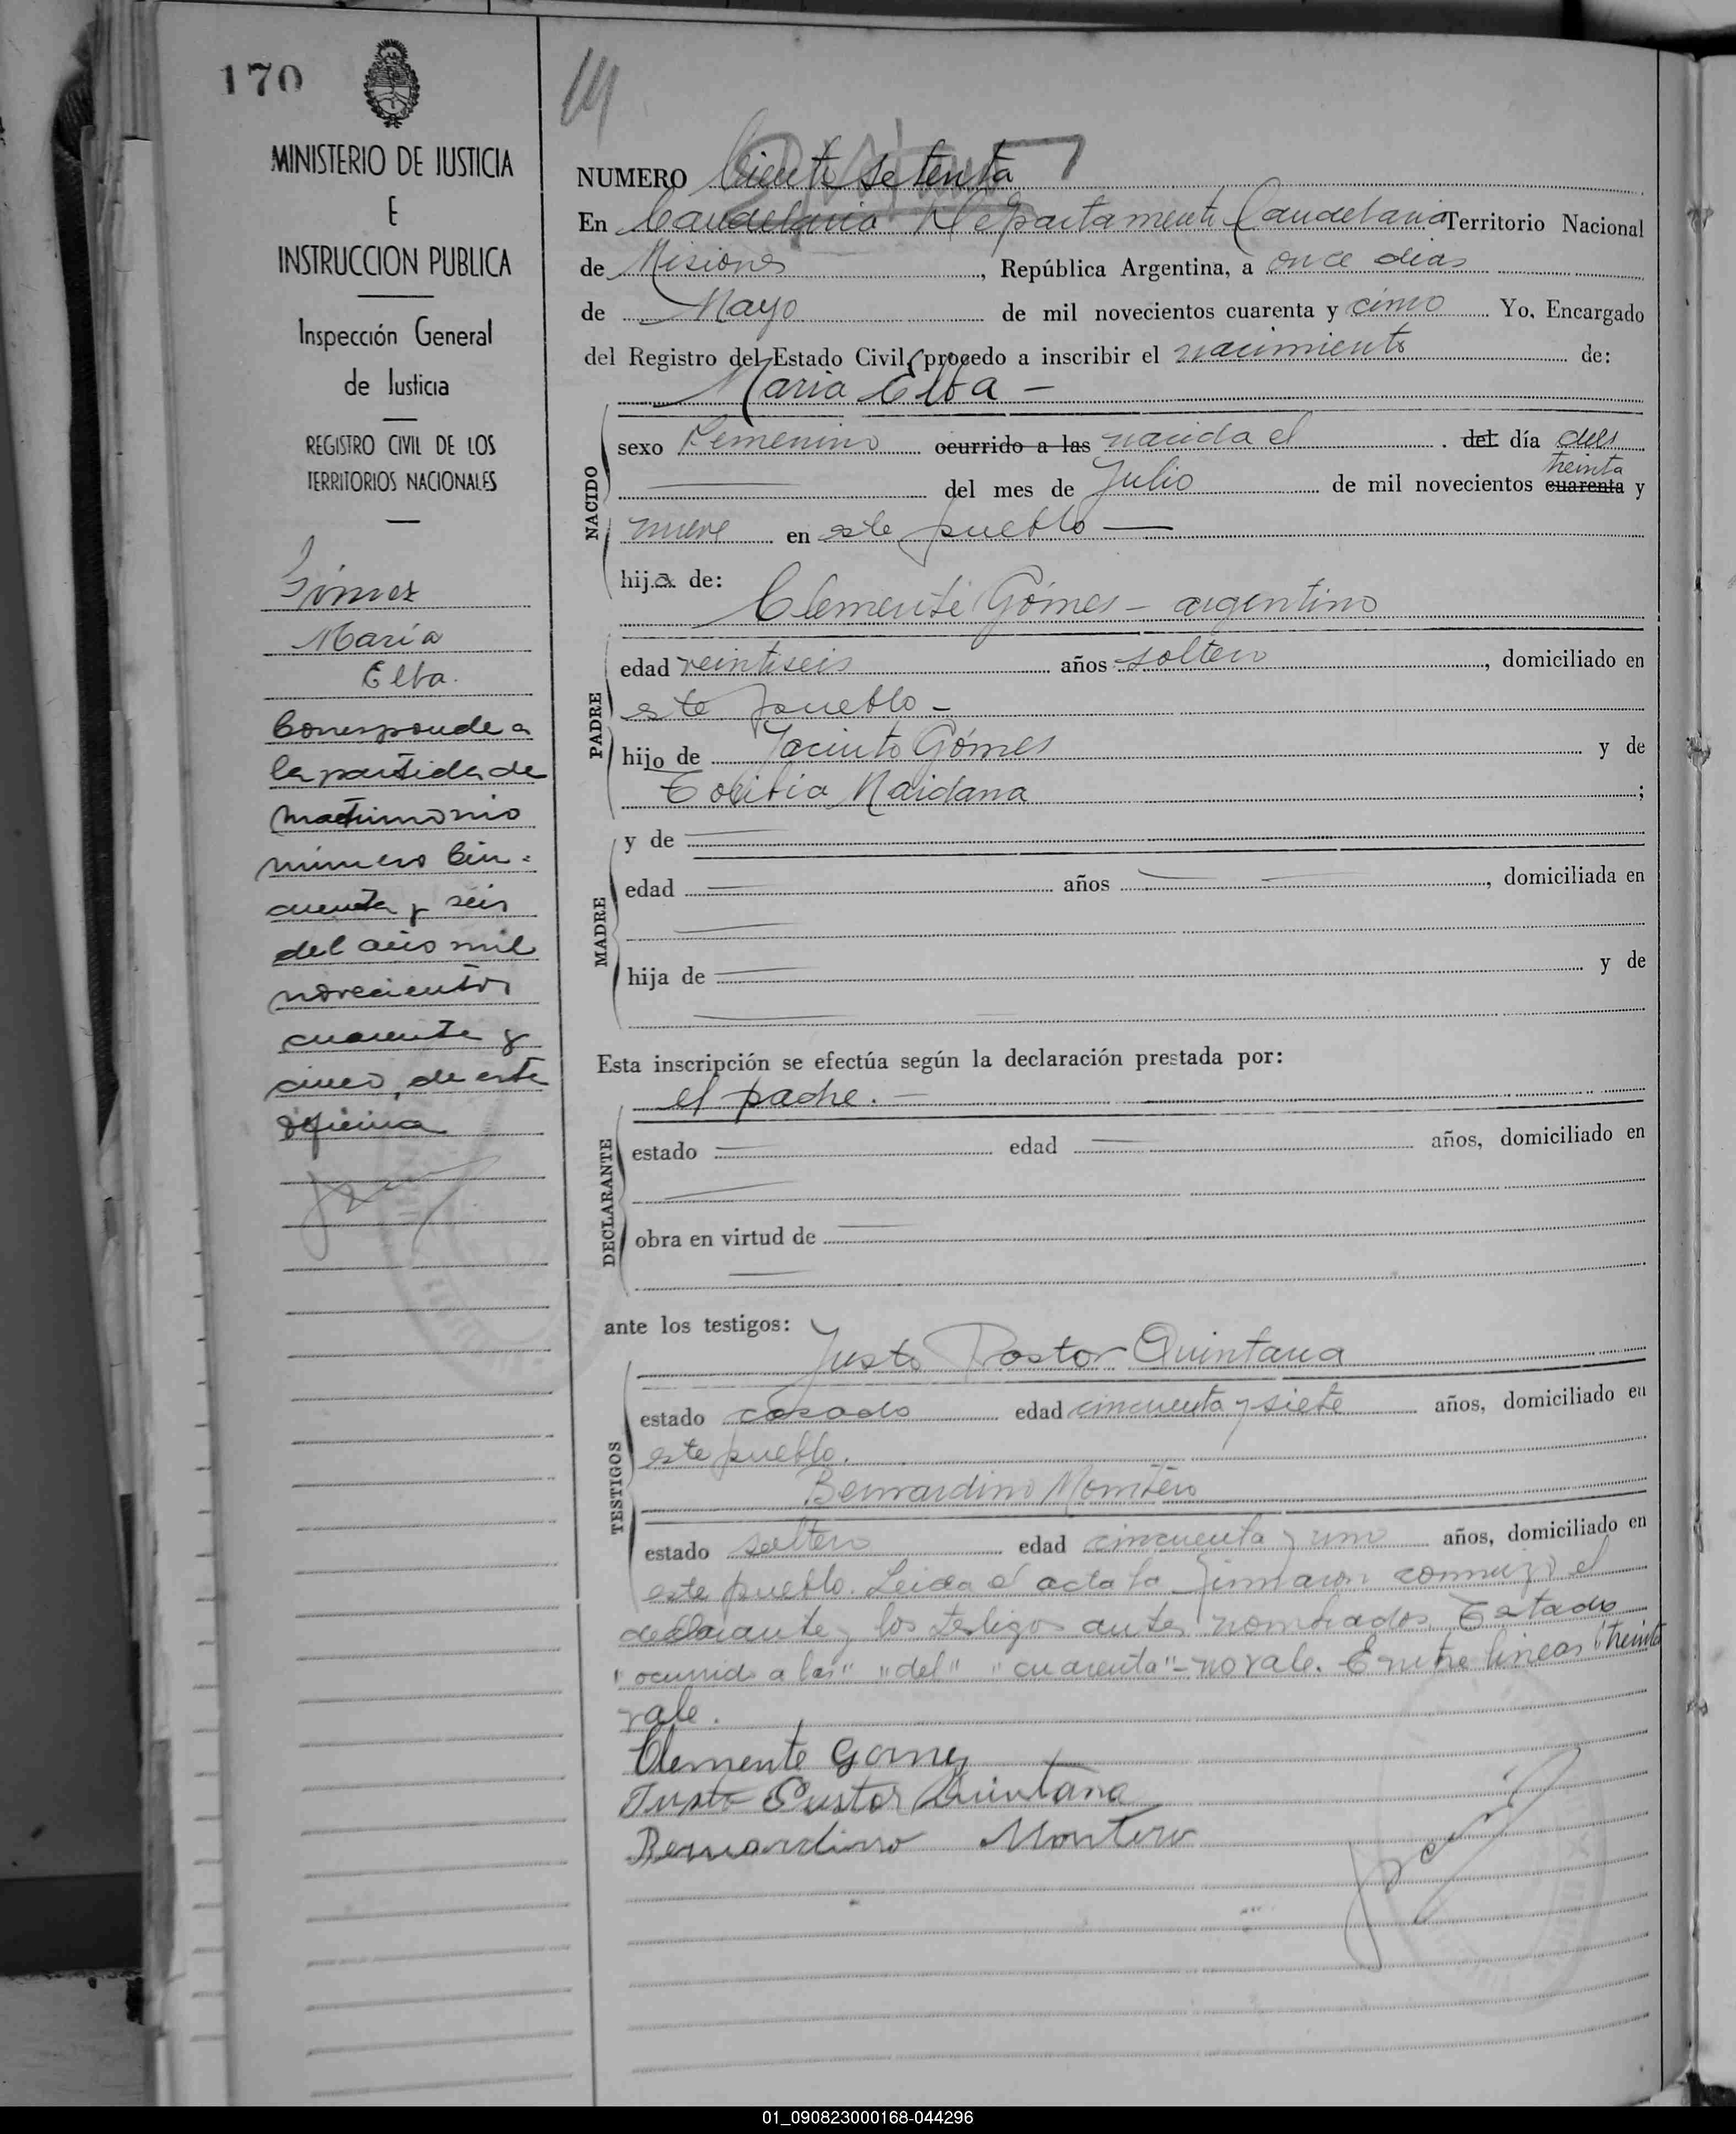 170
MINISTERIO DE JUSTICIA
E
INSTRUCCION PUBLICA
Inspección General
de Justicia
REGISTRO CIVIL DE LOS
TERRITORIOS NACIONALES
Gómez
María
Elba.
Corresponde a
la partida de
matrimonio
número Cin-
cuenta y seis
del año mil
novecientos
cuarenta y
cinco, de esta
oficina
NUMERO Ciento setenta
En Candelaria Departamento Candelaria Territorio Nacional
de Misiones, República Argentina, a once dias
de Mayo de mil novecientos cuarenta y cinco Yo, Encargado
del Registro del Estado Civil, procedo a inscribir el nacimiento de:
María Elba -
NACIDO
sexo Femenino ocurrido a las nacida el . del día dies
treinta
del mes de Julio de mil novecientos cuarenta y
nueve en este pueblo —
hija de:
Clemente Gómes - argentino
PADRE
edad veintiseis años soltero, domiciliado en
este pueblo -
hijo de Jacinto Gómes y de
Toribia Maidana ;
MADRE
y de
edad años , domiciliada en
hija de y de
Esta inscripción se efectúa según la declaración prestada por:
el padre. -
DECLARANTE
estado edad años, domiciliado en
obra en virtud de
ante los testigos:
Justo Pastor Quintana
TESTIGOS
estado casado edad cincuenta y siete años, domiciliado en
este pueblo.
Bernardino Montero
estado soltero edad cincuenta y uno años, domiciliado en
este pueblo. Leida el acta la firmaron conmigo el
declarante y los testigos antes nombrados. Testado
"ocurrido a las" "del" "cuarenta" - no vale. Entre lineas "treinta
vale.
Clemente Gomez
Justo Pastor Quintana
Bernardino Montero
01_090823000168-044296